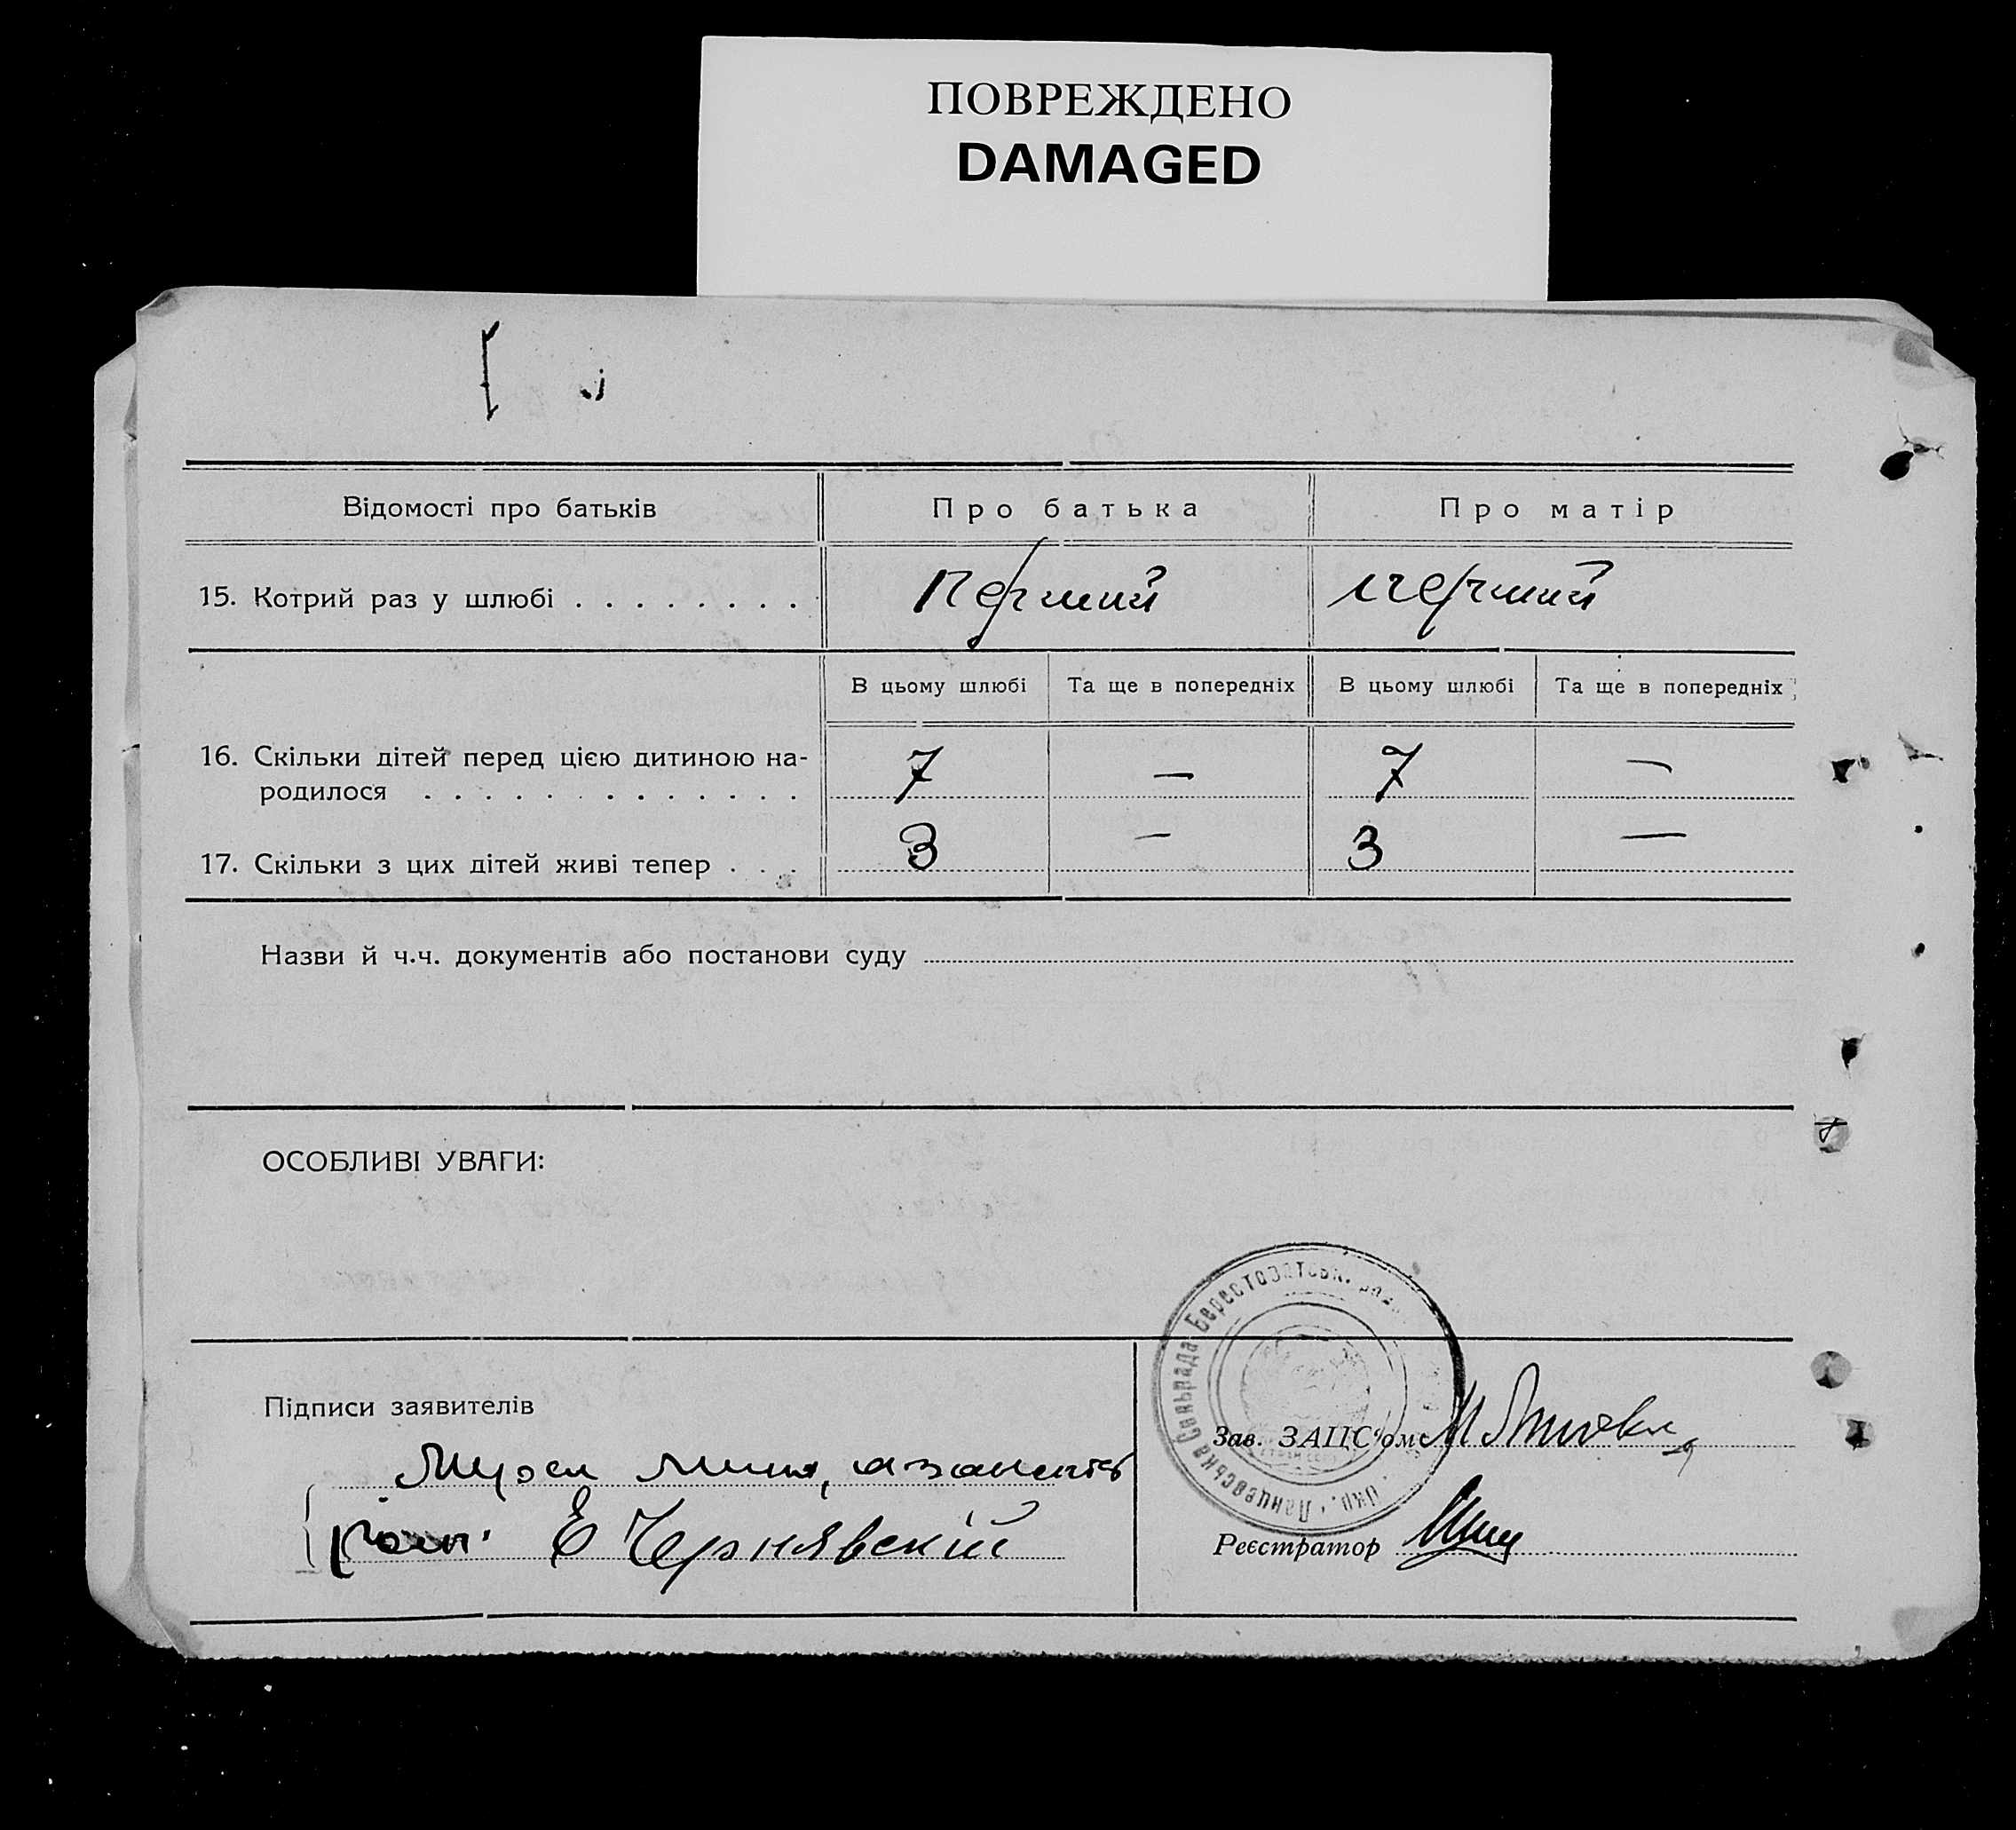 ПОВРЕЖДЕНО
DAMAGED
Відомості про батьків
Про батька
Про матір
15. Котрий раз у шлюбі . . . . . . . .
Перший
перший
В цьому шлюбі
Та ще в попередніх
В цьому шлюбі
Та ще в попередніх
16. Скільки дітей перед цією дитиною на-
родилося . . . . . . . . . . . . .
7
—
7
—
17. Скільки з цих дітей живі тепер . . .
3
—
3
—
Назви й ч.ч. документів або постанови суду
ОСОБЛИВІ УВАГИ:
Підписи заявителів
Е Чернявскій
Зав. ЗАЦС'ом
Реєстратор
Сільрада Берестоватськ.
Окр.